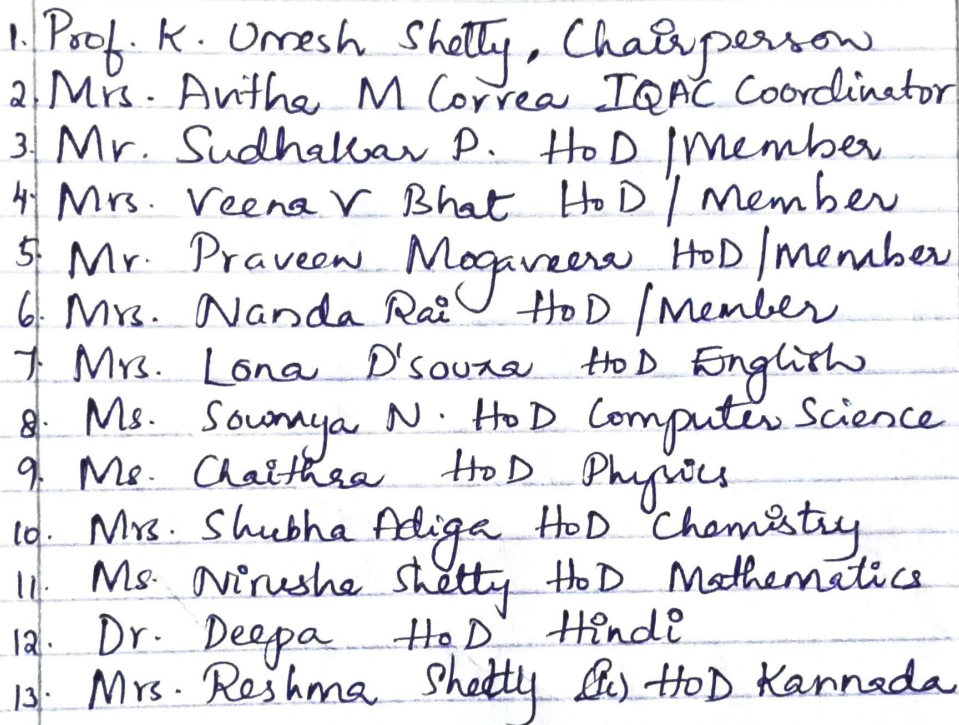 1. Prof. K. Umesh Shetty, Chairperson
2. Mrs. Avitha M Correa IQAC Coordinator
3. Mr. Sudhakar P. HoD / Member
4. Mrs. Veena V Bhat HoD / Member
5. Mr. Praveen Mogaveera HoD / Member
6. Mrs. Nanda Rai HoD / Member
7. Mrs. Lona D'souza HoD English
8. Ms. Sowmya N. HoD Computer Science
9. Ms. Chaithra HoD Physics
10. Mrs. Shubha Adiga HoD Chemistry
11. Ms. Nirusha Shetty HoD Mathematics
12. Dr. Deepa HoD Hindi
13. Mrs. Reshma Shetty HoD Kannada